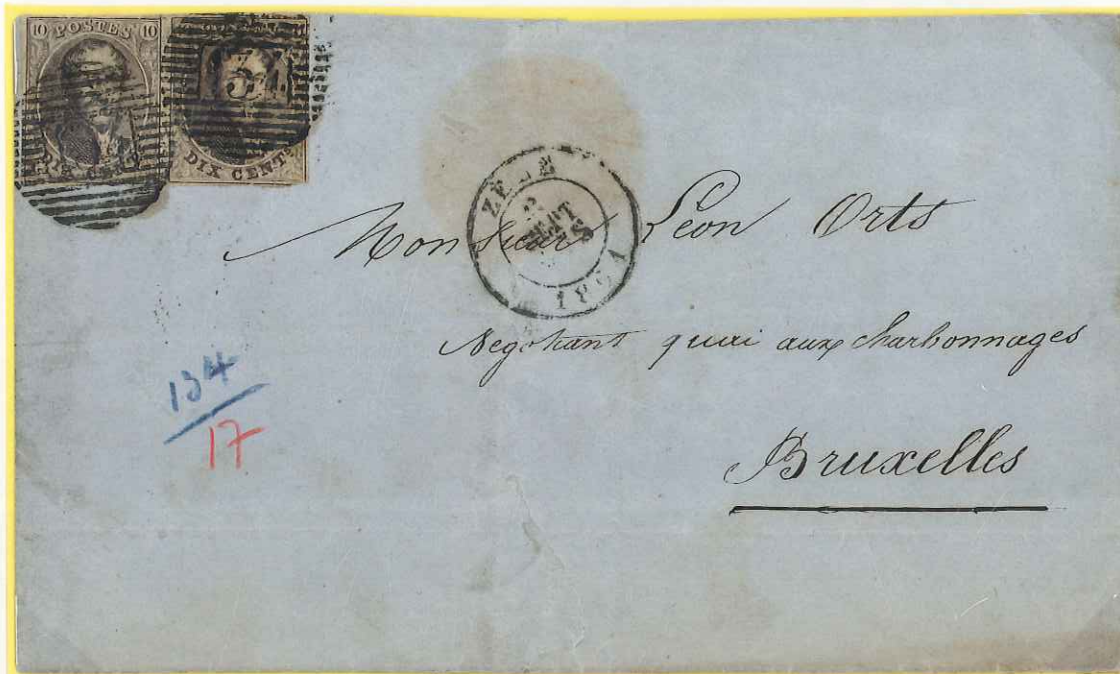 10 POSTES 10
DIX CENT
134
DIX CENTS
ZELE
SEPT
1851
Monsieur Léon Orts
Negotiant quai aux charbonnages
Bruxelles
134
17